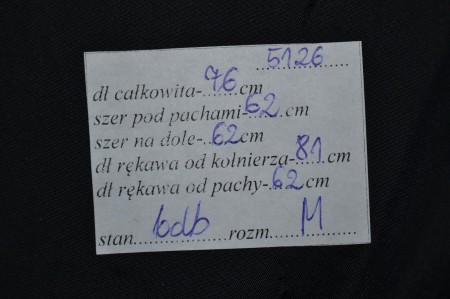 5126
dł całkowita-76cm
szer pod pachami-62cm
szer na dole-62cm
dł rękawa od kołnierza-81cm
dł rękawa od pachy-62cm
stan bdb rozm M